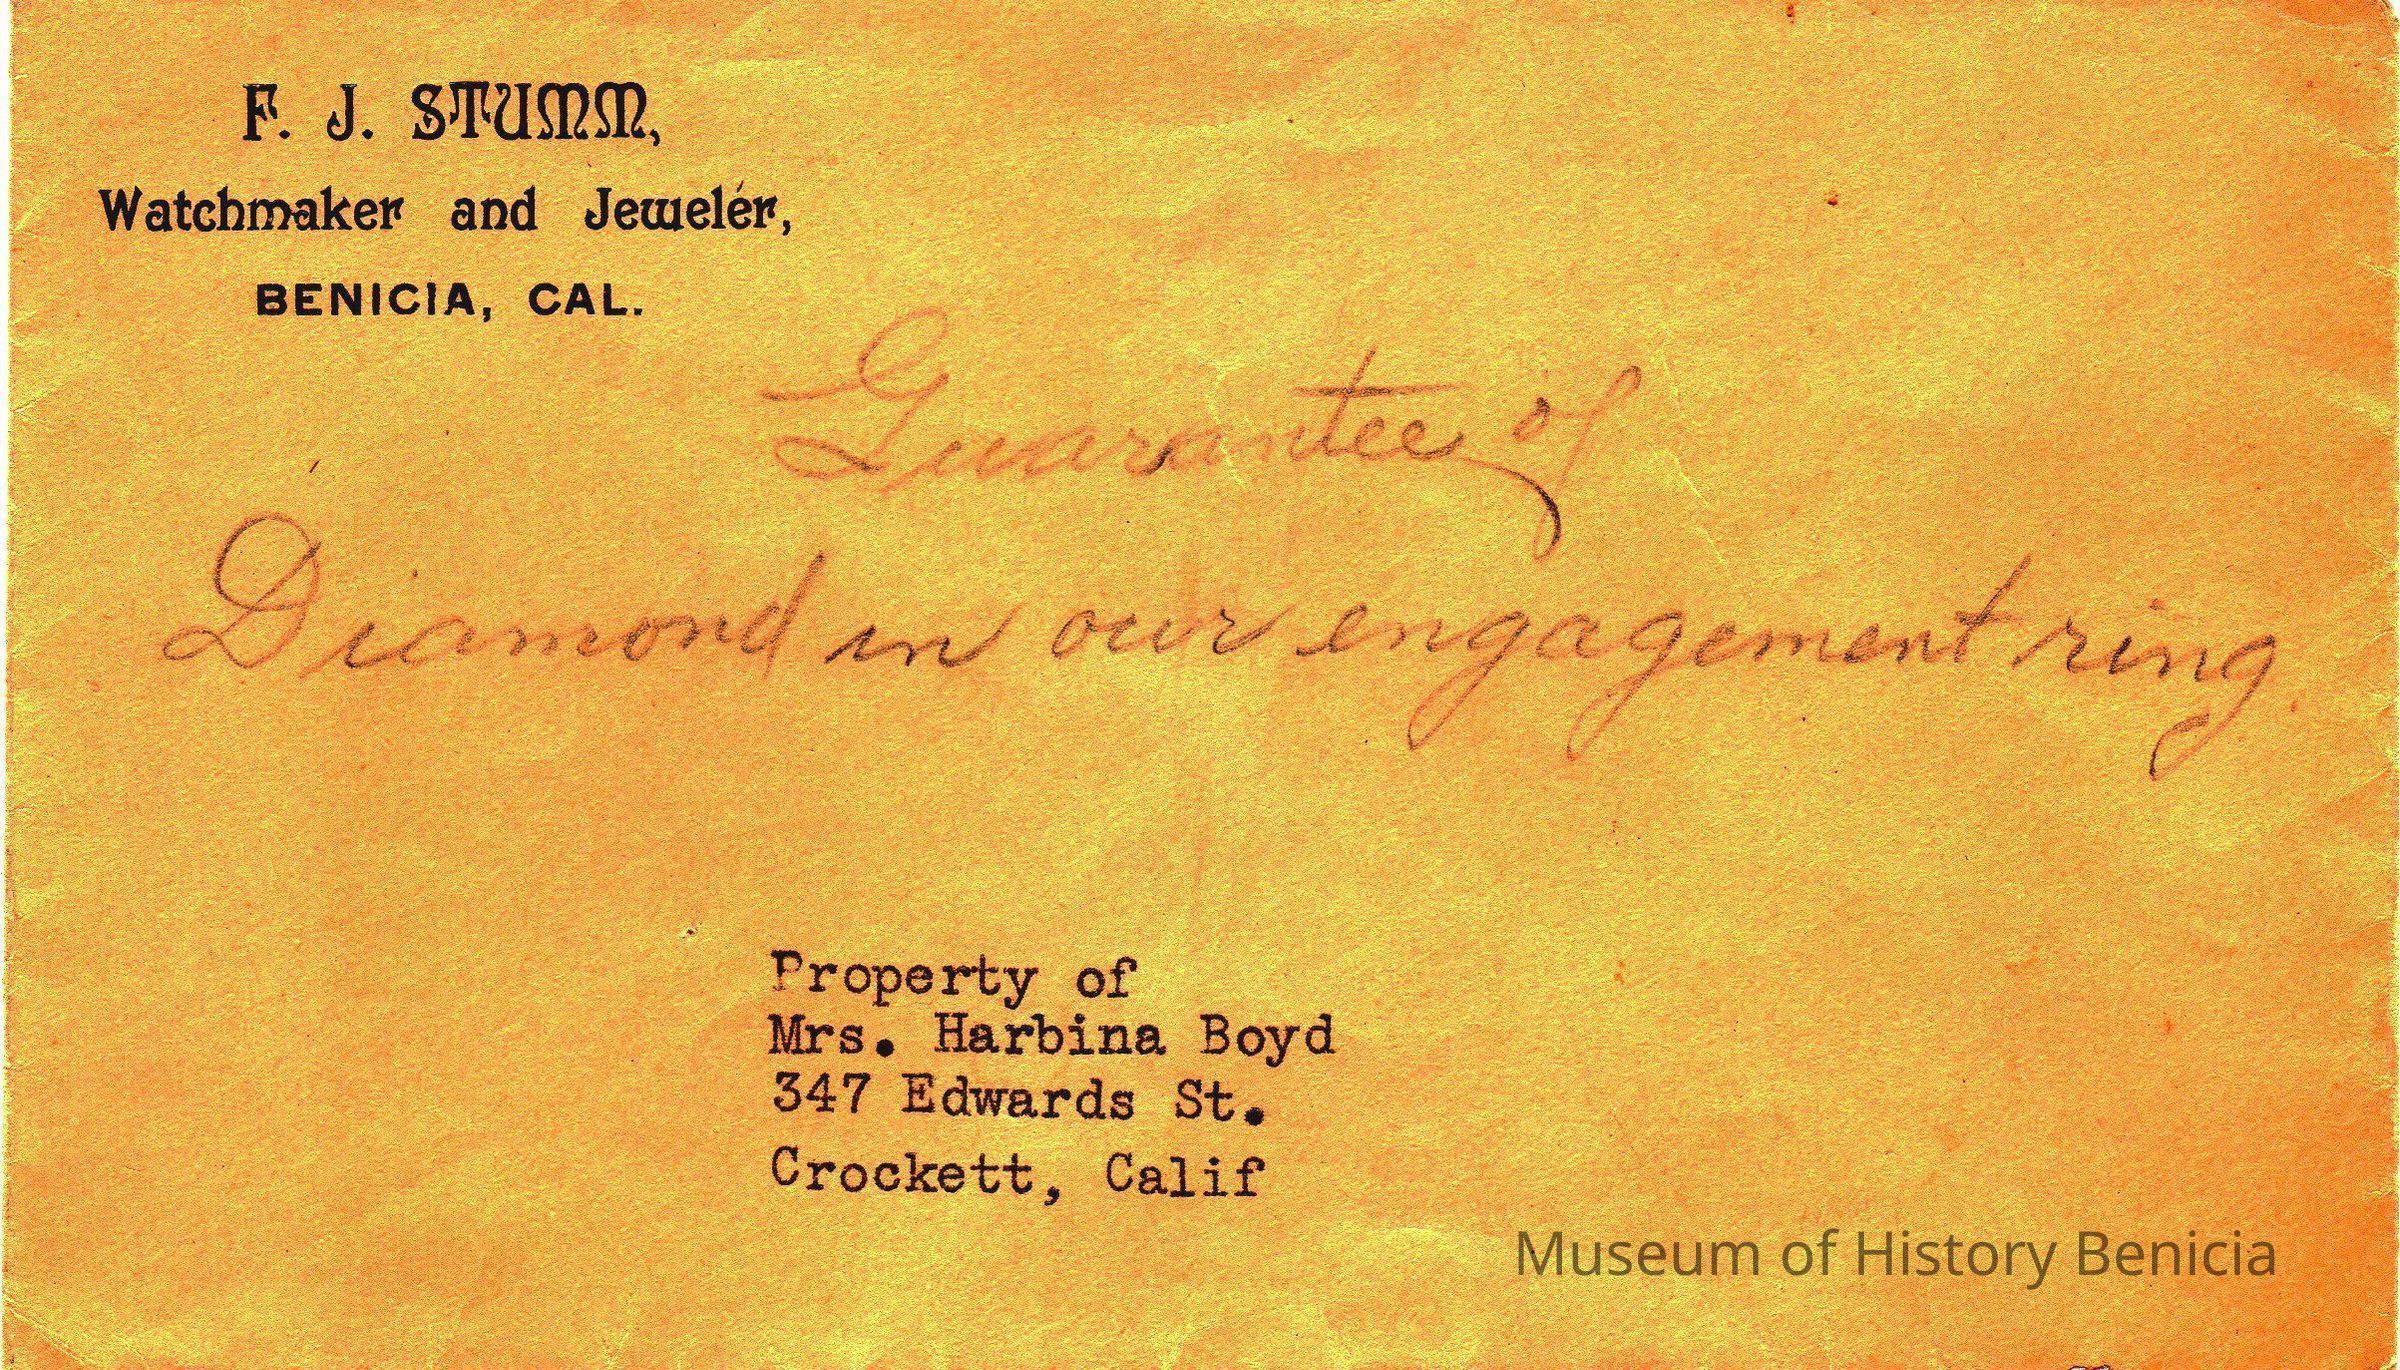 F. J. STUMM,
Watchmaker and Jeweler,
BENICIA, CAL.
Guarantee of
Diamond in our engagement ring.
Property of
Mrs. Harbina Boyd
347 Edwards St.
Crockett, Calif
Museum of History Benicia